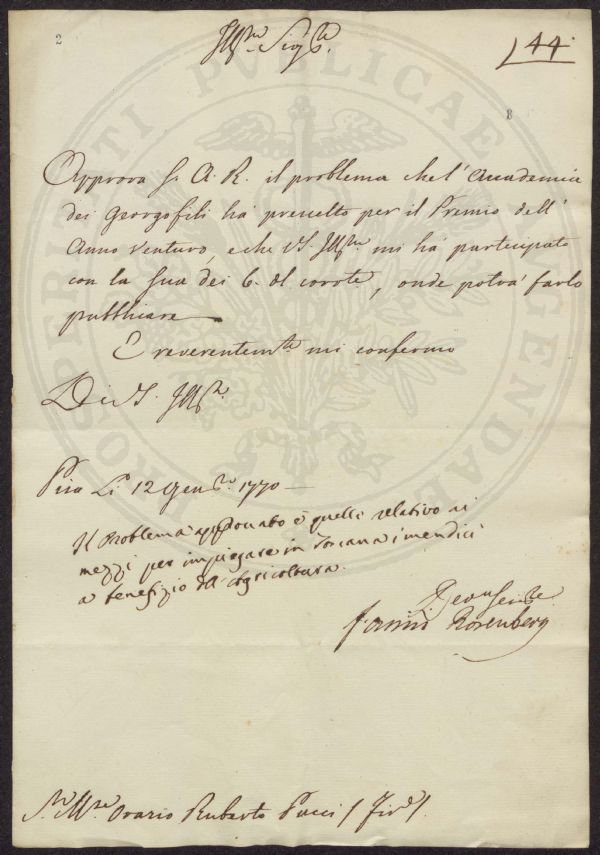 2
Ill.mo Sig.re
44
8
Approva S. A. R. il problema che l'Accademia
dei Georgofili ha prescelto per il Premio dell'
Anno venturo, e che V.S. Ill.ma mi ha participato
con la sua dei 6. del corr.te, onde potrà farlo
pubblicare
E reverentem.te mi confermo
Di V.S. Ill.ma
Pisa Li 12 Gen.ro 1770
Il Problema approvato è quello relativo ai
mezzi per impiegare in Toscana i mendici
a benefizio dell'Agricoltura.
Dev.mo Ser.re
Rosenberg
S.r M.se Orazio Ruberto Pucci / Fir.e /
PROSPERITATI PUBLICAE AUGENDAE